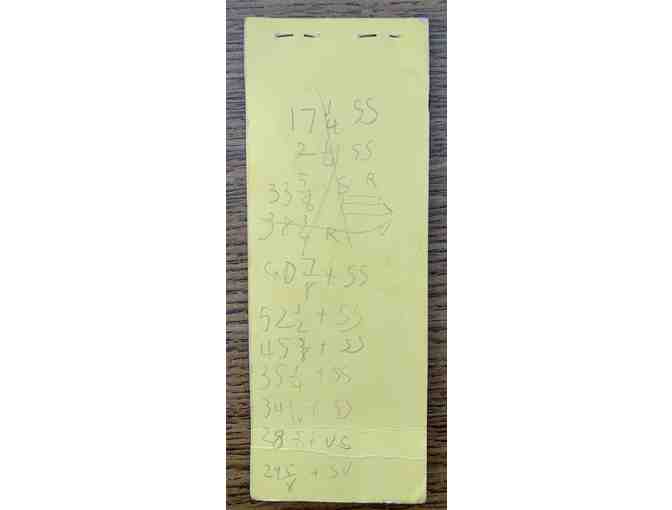 17 1/4 SS
2 1/4 SS
33 5/8 S R
38 3/4 R
40 7/8 + SS
52 1/2 + SS
45 3/8 + SS
35 1/4 + SS
34 + SS
28 + VS
29 5/8 + SV